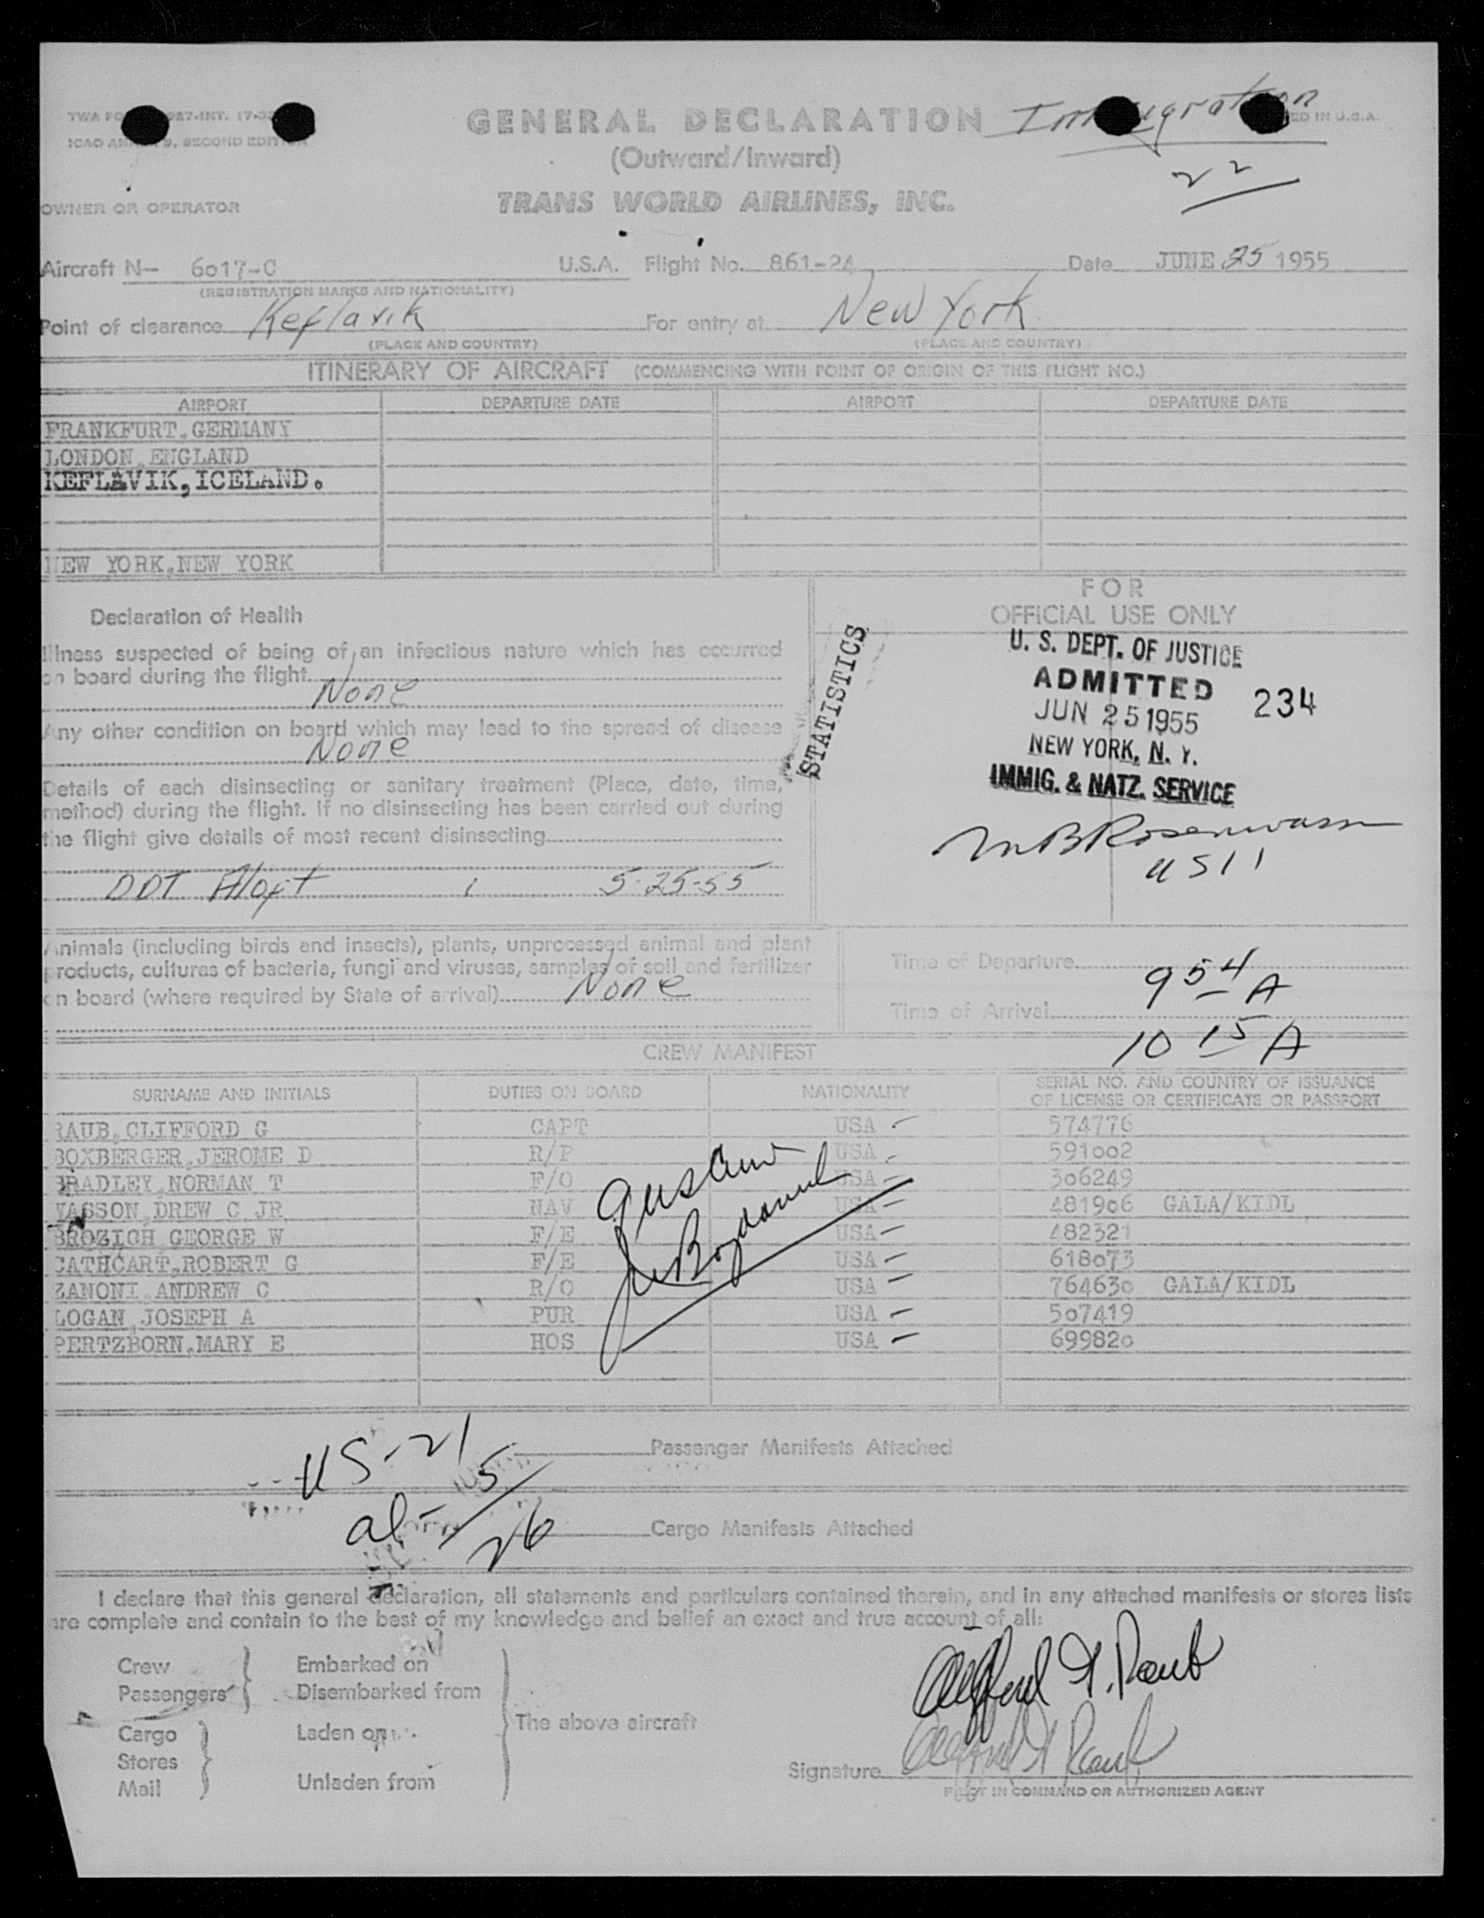 GENERAL DECLARATION
Immigration
ICAO ANNEX 9, SECOND EDITION
(Outward/Inward)
22
OWNER OR OPERATOR
TRANS WORLD AIRLINES, INC.
Aircraft N- 6017-C U.S.A. Flight No. 861-24 Date JUNE 25 1955
(REGISTRATION MARKS AND NATIONALITY)
Point of clearance Keflavik For entry at New York
(PLACE AND COUNTRY) (PLACE AND COUNTRY)
ITINERARY OF AIRCRAFT (COMMENCING WITH POINT OF ORIGIN OF THIS FLIGHT NO.)
AIRPORT DEPARTURE DATE AIRPORT DEPARTURE DATE
FRANKFURT,GERMANY
LONDON,ENGLAND
KEFLAVIK, ICELAND.
NEW YORK,NEW YORK
Declaration of Health
Illness suspected of being of an infectious nature which has occurred
on board during the flight
None
Any other condition on board which may lead to the spread of disease
None
Details of each disinsecting or sanitary treatment (Place, date, time,
method) during the flight. If no disinsecting has been carried out during
the flight give details of most recent disinsecting
DDT Aloft 5-25-55
STATISTICS
FOR
OFFICIAL USE ONLY
U. S. DEPT. OF JUSTICE
ADMITTED 234
JUN 25 1955
NEW YORK, N. Y.
IMMIG. & NATZ. SERVICE
Animals (including birds and insects), plants, unprocessed animal and plant
products, cultures of bacteria, fungi and viruses, samples of soil and fertilizer
on board (where required by State of arrival) None
Time of Departure 9 54 A
Time of Arrival 10 15 A
CREW MANIFEST
SURNAME AND INITIALS DUTIES ON BOARD NATIONALITY SERIAL NO. AND COUNTRY OF ISSUANCE
OF LICENSE OR CERTIFICATE OR PASSPORT
RAUB,CLIFFORD G CAPT USA 574776
BOXBERGER,JEROME D R/P USA 591002
BRADLEY,NORMAN T F/O USA 306249
WASSON,DREW C JR NAV USA 481906 GALA/KIDL
BROZICH GEORGE W F/E USA 482321
CATHCART,ROBERT G F/E USA 618073
ZANONI ANDREW C R/O USA 764630 GALA/KIDL
LOGAN,JOSEPH A PUR USA 507419
PERTZBORN,MARY E HOS USA 699820
US-21
Passenger Manifests Attached
al-5
26
Cargo Manifests Attached
I declare that this general declaration, all statements and particulars contained therein, and in any attached manifests or stores lists
are complete and contain to the best of my knowledge and belief an exact and true account of all:
Crew
Passengers
Embarked on
Disembarked from
Cargo
Stores
Mail
Laden on
Unladen from
The above aircraft
Clifford G. Raub
Signature Clifford G Raub
PILOT IN COMMAND OR AUTHORIZED AGENT